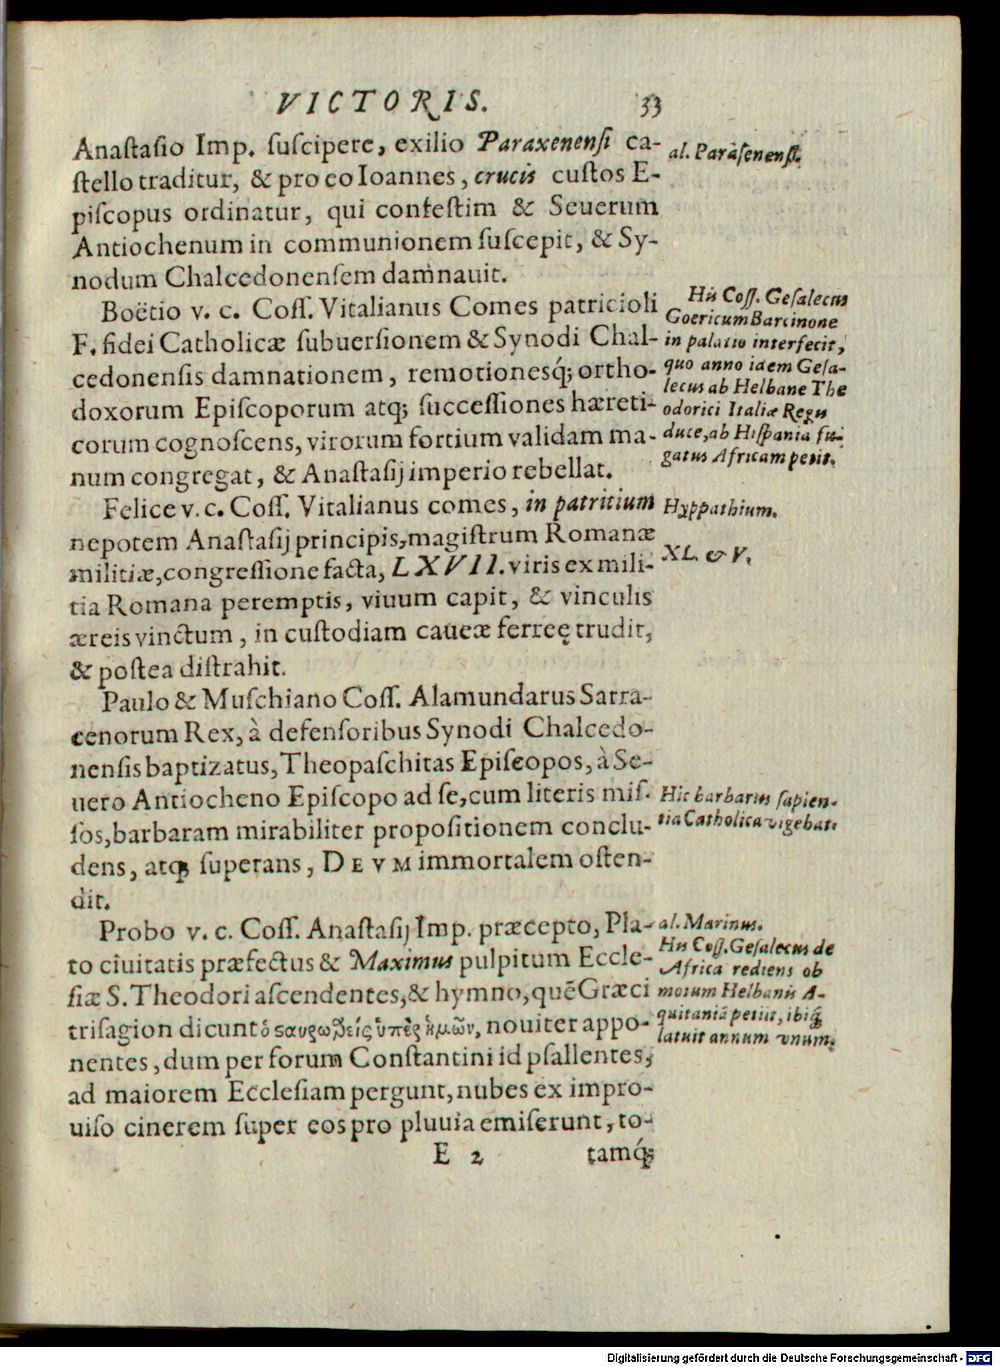 VICTORIS. 33
Anaſtaſio Imp. ſuſcipere, exilio Paraxenenſi ca-
ſtello traditur, & pro eo Ioannes, crucis cuſtos E-
piſcopus ordinatur, qui confeſtim & Seuerum
Antiochenum in communionem ſuſcepit, & Sy-
nodum Chalcedonenſem damnauit.
al. Paraſenenſi.
Boëtio v. c. Coſſ. Vitalianus Comes patricioli
F. fidei Catholicæ ſubuerſionem & Synodi Chal-
cedonenſis damnationem, remotionesq́; ortho-
doxorum Epiſcoporum atq; ſucceſſiones hæreti-
corum cognoſcens, virorum fortium validam ma-
num congregat, & Anaſtaſij imperio rebellat.
His Coſſ. Geſalecus
Goericum Barcinone
in palatio interfecit,
quo anno idem Geſa-
lecus ab Helbane The
odorici Italiæ Regis
duce, ab Hiſpania fu-
gatus Africam petit.
Felice v. c. Coſſ. Vitalianus comes, in patritium
nepotem Anaſtaſij principis, magiſtrum Romanæ
militiæ, congreſſione facta, LXVII. viris ex mili-
tia Romana peremptis, viuum capit, & vinculis
æreis vinctum, in cuſtodiam caueæ ferreę trudit,
& poſtea diſtrahit.
Hyppathium.
XL. & V.
Paulo & Muſchiano Coſſ. Alamundarus Sarra-
cenorum Rex, à defenſoribus Synodi Chalcedo-
nenſis baptizatus, Theopaſchitas Epiſcopos, à Se-
uero Antiocheno Epiſcopo ad ſe, cum literis miſ-
ſos, barbaram mirabiliter propoſitionem conclu-
dens, atq; ſuperans, DEVM immortalem oſten-
dit.
Hic barbarus ſapien-
tia Catholica vigebat.
Probo v. c. Coſſ. Anaſtaſij Imp. præcepto, Pla-
to ciuitatis præfectus & Maximus pulpitum Eccle-
ſiæ S. Theodori aſcendentes, & hymno, quẽ Græci
triſagion dicunt ὁ σαυρωθεὶς ὑπὲρ ἡμῶν, nouiter appo-
nentes, dum per forum Conſtantini id pſallentes,
ad maiorem Eccleſiam pergunt, nubes ex impro-
uiſo cinerem ſuper eos pro pluuia emiſerunt, to-
al. Marinus.
His Coſſ. Geſalecus de
Africa rediens ob
motum Helbanis A-
quitaniã petiit, ibiq́;
latuit annum vnum.
E 2 tamq́;
Digitalisierung gefördert durch die Deutsche Forschungsgemeinschaft - DFG